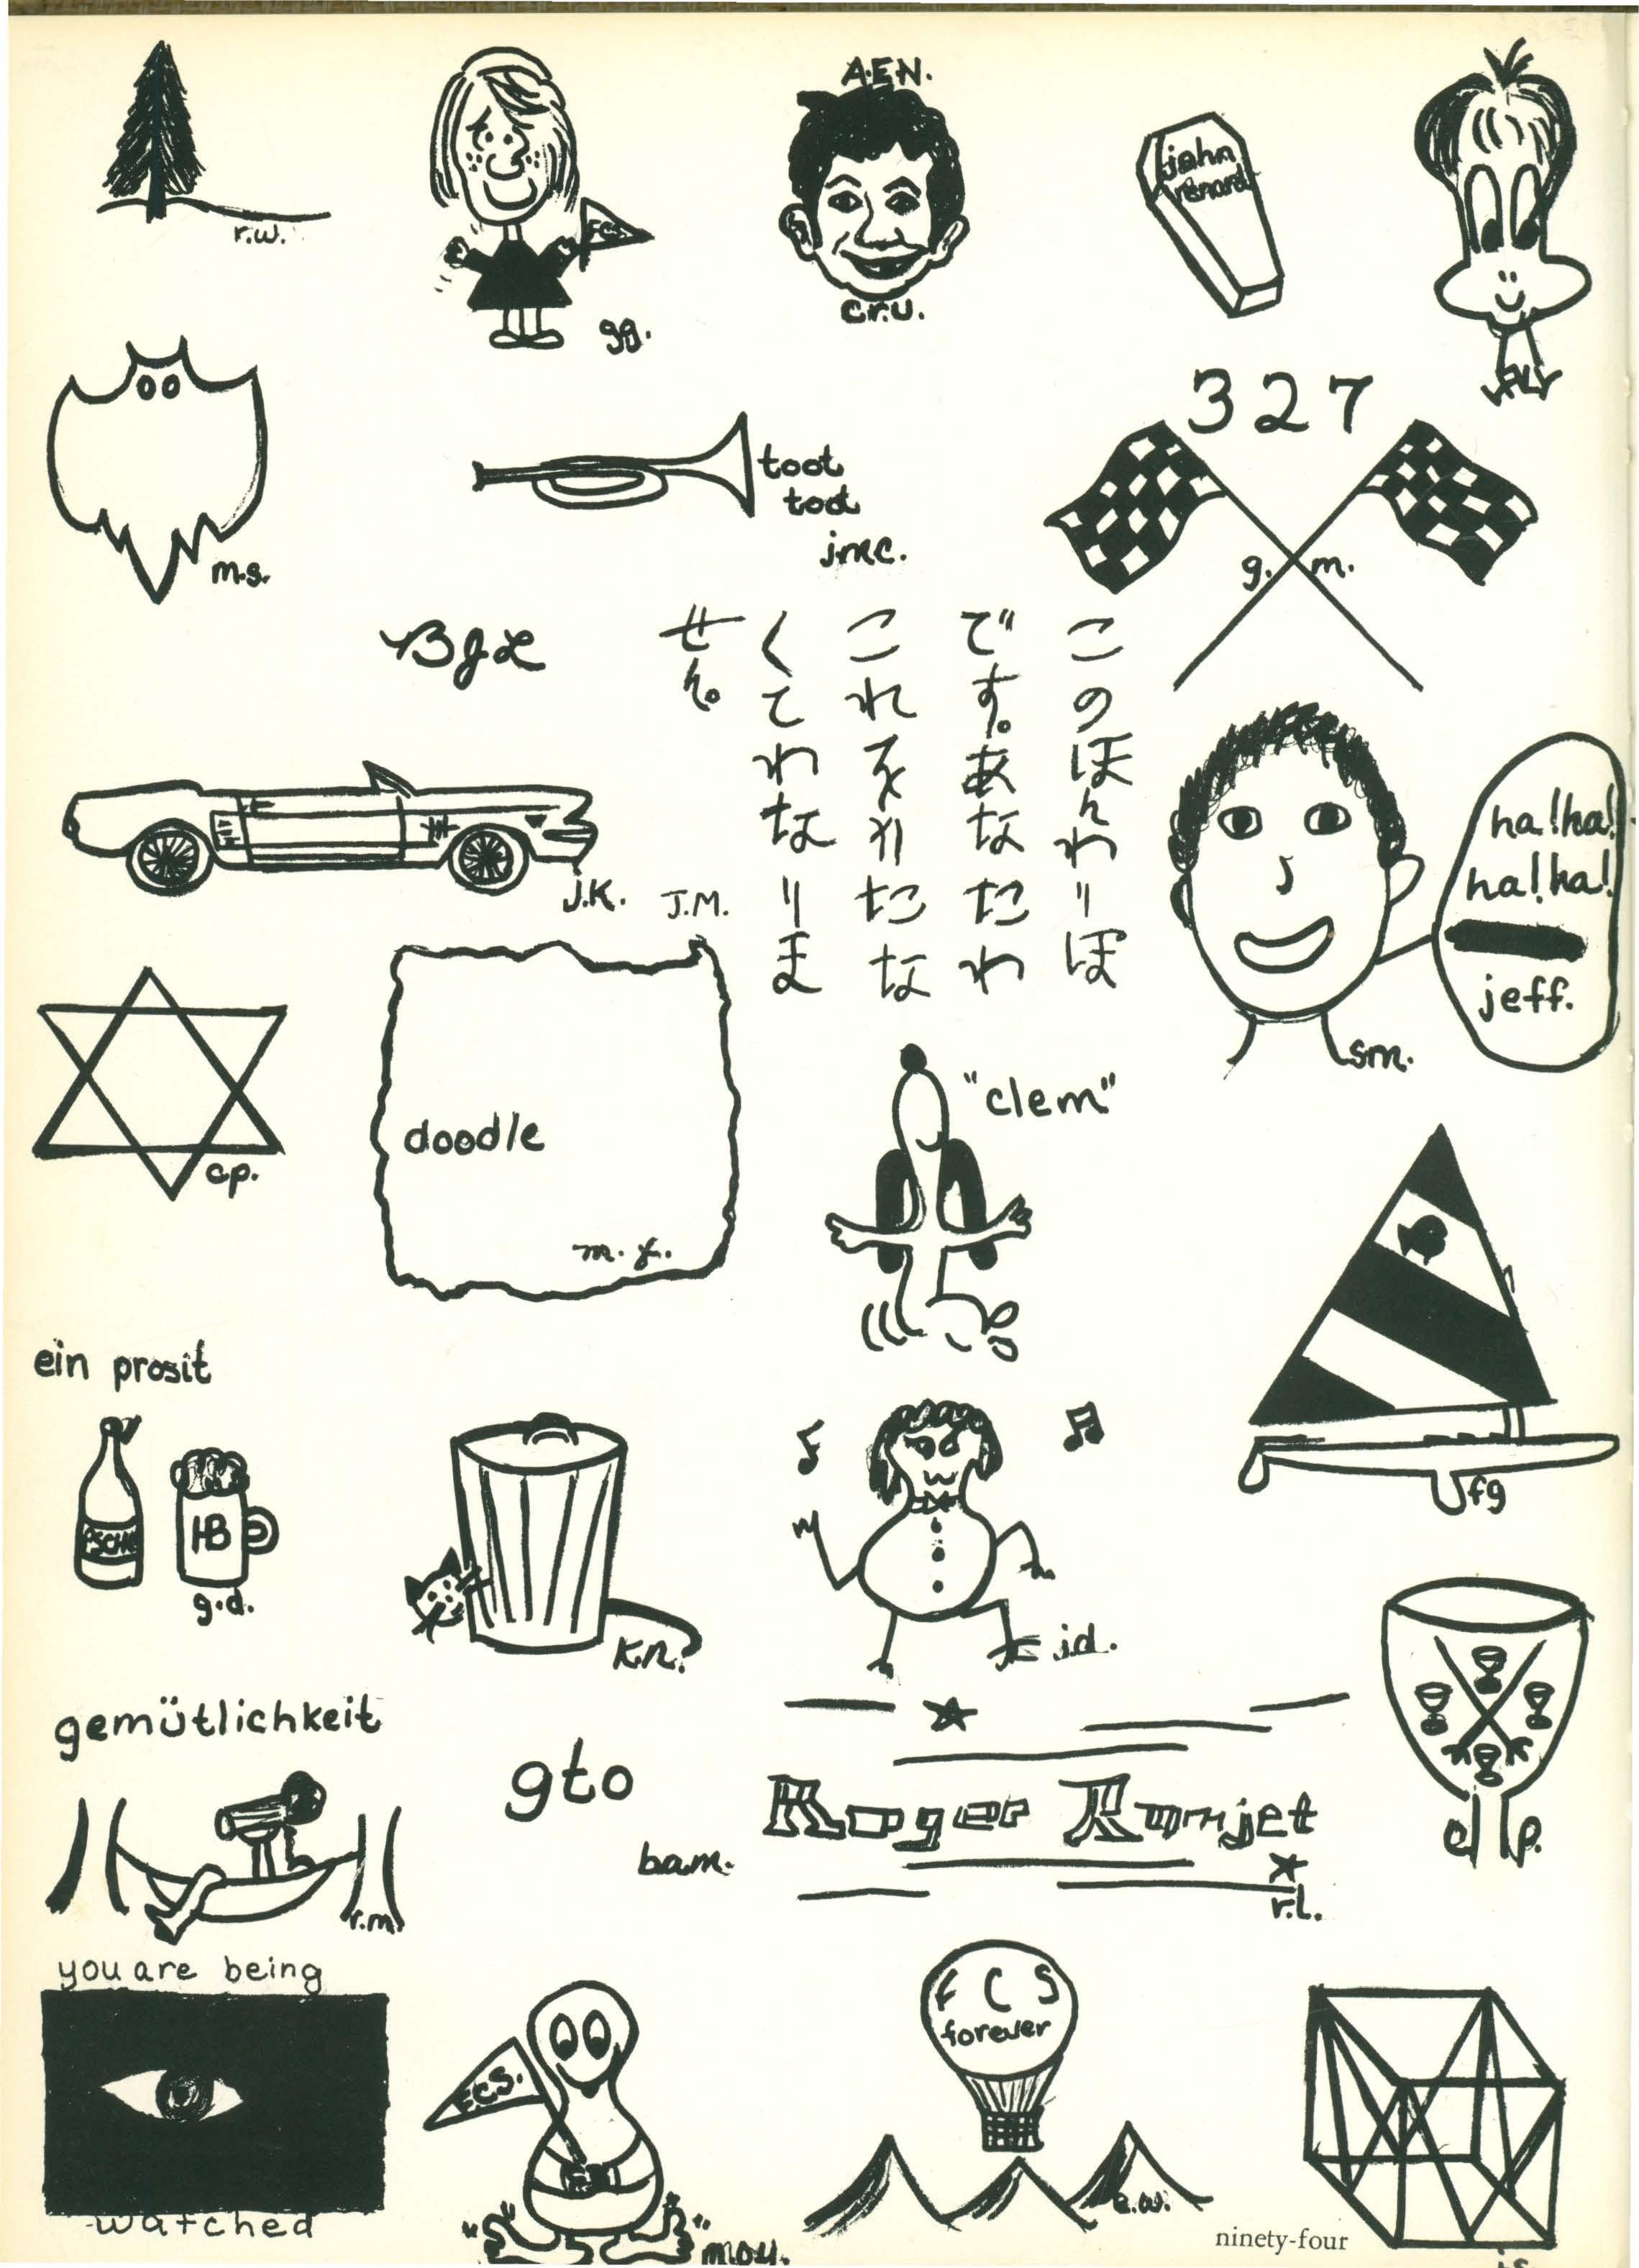 A.E.N.
john
renard
r.w.
F.C.S.
gg.
c.r.u.
327
toot
toot
jmc.
g. m.
m.s.
BJL
このほんわりぽ
です。あなたわ
これをかたな
くてわなりま
せん。
ha!ha!
ha!ha!
jeff.
sm.
J.K.
J.M.
"clem"
doodle
cp.
m.y.
ein prosit
HB
g.d.
fg
k.n.
j.d.
gemütlichkeit
gto
bam.
Roger Ramjet
r.l.
d p.
r.m.
you are being
watched
F.C.S.
moy.
F C S
forever
e.w.
ninety-four